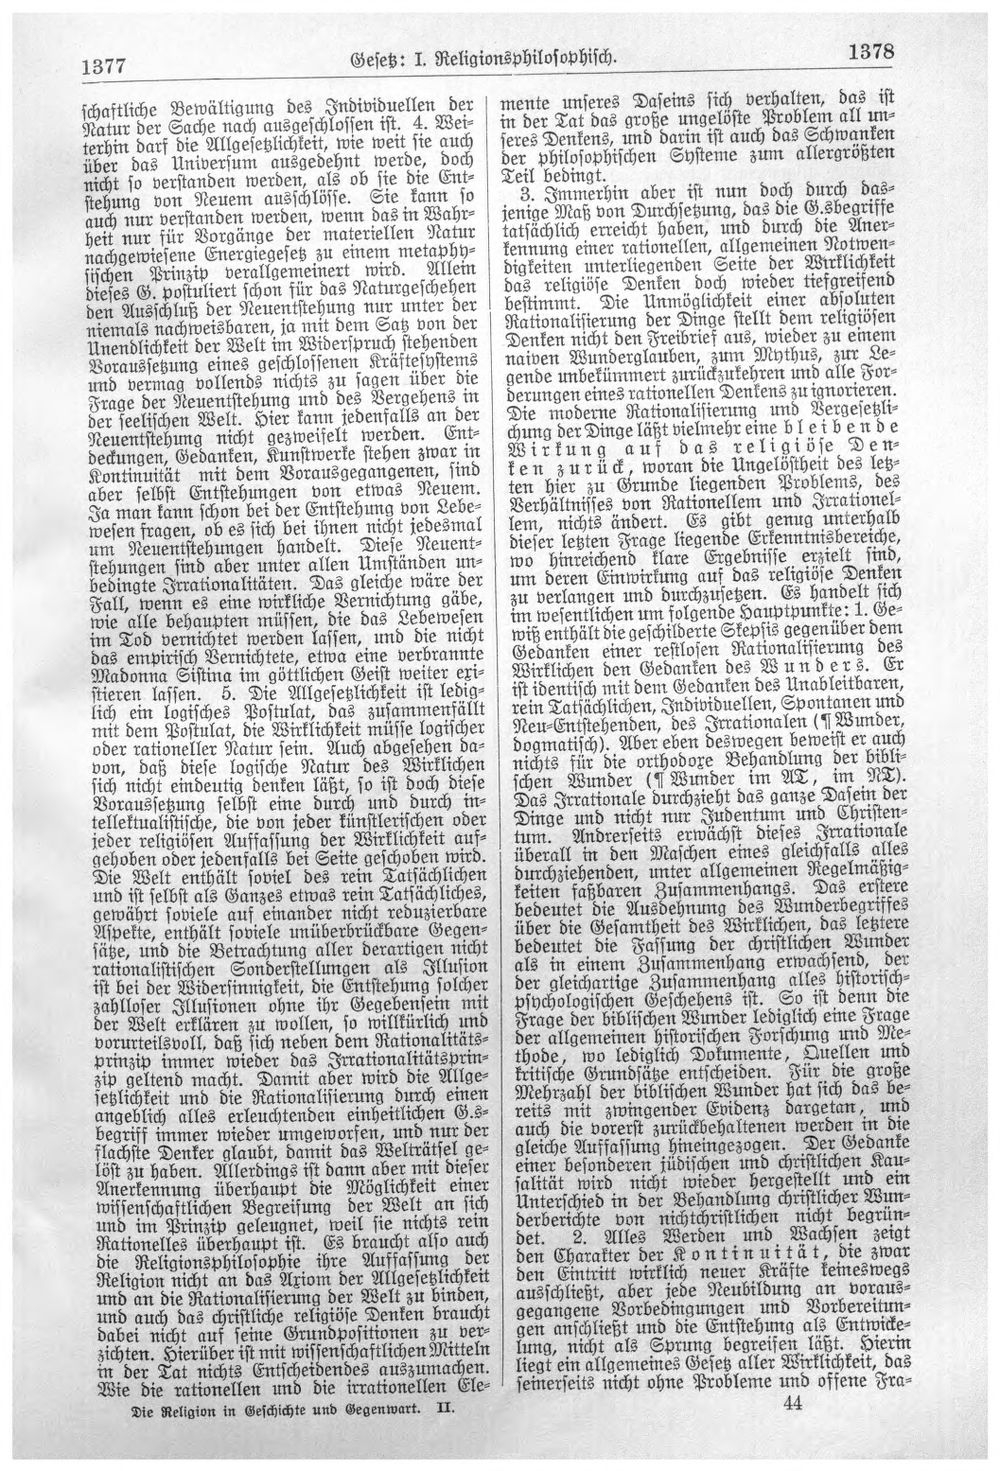 1377
Gesetz: I. Religionsphilosophisch.
1378
schaftliche Bewältigung des Individuellen der
Natur der Sache nach ausgeschlossen ist. 4. Wei-
terhin darf die Allgesetzlichkeit, wie weit sie auch
über das Universum ausgedehnt werde, doch
nicht so verstanden werden, als ob sie die Ent-
stehung von Neuem ausschlösse. Sie kann so
auch nur verstanden werden, wenn das in Wahr-
heit nur für Vorgänge der materiellen Natur
nachgewiesene Energiegesetz zu einem metaphy-
sischen Prinzip verallgemeinert wird. Allein
dieses G. postuliert schon für das Naturgeschehen
den Ausschluß der Neuentstehung nur unter der
niemals nachweisbaren, ja mit dem Satz von der
Unendlichkeit der Welt im Widerspruch stehenden
Voraussetzung eines geschlossenen Kräftesystems
und vermag vollends nichts zu sagen über die
Frage der Neuentstehung und des Vergehens in
der seelischen Welt. Hier kann jedenfalls an der
Neuentstehung nicht gezweifelt werden. Ent-
deckungen, Gedanken, Kunstwerke stehen zwar in
Kontinuität mit dem Vorausgegangenen, sind
aber selbst Entstehungen von etwas Neuem.
Ja man kann schon bei der Entstehung von Lebe-
wesen fragen, ob es sich bei ihnen nicht jedesmal
um Neuentstehungen handelt. Diese Neuent-
stehungen sind aber unter allen Umständen un-
bedingte Irrationalitäten. Das gleiche wäre der
Fall, wenn es eine wirkliche Vernichtung gäbe,
wie alle behaupten müssen, die das Lebewesen
im Tod vernichtet werden lassen, und die nicht
das empirisch Vernichtete, etwa eine verbrannte
Madonna Sistina im göttlichen Geist weiter exi-
stieren lassen. 5. Die Allgesetzlichkeit ist ledig-
lich ein logisches Postulat, das zusammenfällt
mit dem Postulat, die Wirklichkeit müsse logischer
oder rationeller Natur sein. Auch abgesehen da-
von, daß diese logische Natur des Wirklichen
sich nicht eindeutig denken läßt, so ist doch diese
Voraussetzung selbst eine durch und durch in-
tellektualistische, die von jeder künstlerischen oder
jeder religiösen Auffassung der Wirklichkeit auf-
gehoben oder jedenfalls bei Seite geschoben wird.
Die Welt enthält soviel des rein Tatsächlichen
und ist selbst als Ganzes etwas rein Tatsächliches,
gewährt soviele auf einander nicht reduzierbare
Aspekte, enthält soviele unüberbrückbare Gegen-
sätze, und die Betrachtung aller derartigen nicht
rationalistischen Sonderstellungen als Illusion
ist bei der Widersinnigkeit, die Entstehung solcher
zahlloser Illusionen ohne ihr Gegebensein mit
der Welt erklären zu wollen, so willkürlich und
vorurteilsvoll, daß sich neben dem Rationalitäts-
prinzip immer wieder das Irrationalitätsprin-
zip geltend macht. Damit aber wird die Allge-
setzlichkeit und die Rationalisierung durch einen
angeblich alles erleuchtenden einheitlichen G.s-
begriff immer wieder umgeworfen, und nur der
flachste Denker glaubt, damit das Welträtsel ge-
löst zu haben. Allerdings ist dann aber mit dieser
Anerkennung überhaupt die Möglichkeit einer
wissenschaftlichen Begreifung der Welt an sich
und im Prinzip geleugnet, weil sie nichts rein
Rationelles überhaupt ist. Es braucht also auch
die Religionsphilosophie ihre Auffassung der
Religion nicht an das Axiom der Allgesetzlichkeit
und an die Rationalisierung der Welt zu binden,
und auch das christliche religiöse Denken braucht
dabei nicht auf seine Grundpositionen zu ver-
zichten. Hierüber ist mit wissenschaftlichen Mitteln
in der Tat nichts Entscheidendes auszumachen.
Wie die rationellen und die irrationellen Ele-
mente unseres Daseins sich verhalten, das ist
in der Tat das große ungelöste Problem all un-
seres Denkens, und darin ist auch das Schwanken
der philosophischen Systeme zum allergrößten
Teil bedingt.
3. Immerhin aber ist nun doch durch das-
jenige Maß von Durchsetzung, das die G.sbegriffe
tatsächlich erreicht haben, und durch die Aner-
kennung einer rationellen, allgemeinen Notwen-
digkeiten unterliegenden Seite der Wirklichkeit
das religiöse Denken doch wieder tiefgreifend
bestimmt. Die Unmöglichkeit einer absoluten
Rationalisierung der Dinge stellt dem religiösen
Denken nicht den Freibrief aus, wieder zu einem
naiven Wunderglauben, zum Mythus, zur Le-
gende unbekümmert zurückzukehren und alle For-
derungen eines rationellen Denkens zu ignorieren.
Die moderne Rationalisierung und Vergesetzli-
chung der Dinge läßt vielmehr eine bleibende
Wirkung auf das religiöse Den-
ken zurück, woran die Ungelöstheit des letz-
ten hier zu Grunde liegenden Problems, des
Verhältnisses von Rationellem und Irrationel-
lem, nichts ändert. Es gibt genug unterhalb
dieser letzten Frage liegende Erkenntnisbereiche,
wo hinreichend klare Ergebnisse erzielt sind,
um deren Einwirkung auf das religiöse Denken
zu verlangen und durchzusetzen. Es handelt sich
im wesentlichen um folgende Hauptpunkte: 1. Ge-
wiß enthält die geschilderte Skepsis gegenüber dem
Gedanken einer restlosen Rationalisierung des
Wirklichen den Gedanken des Wunders. Er
ist identisch mit dem Gedanken des Unableitbaren,
rein Tatsächlichen, Individuellen, Spontanen und
Neu-Entstehenden, des Irrationalen (¶ Wunder,
dogmatisch). Aber eben deswegen beweist er auch
nichts für die orthodoxe Behandlung der bibli-
schen Wunder (¶ Wunder im AT, im NT).
Das Irrationale durchzieht das ganze Dasein der
Dinge und nicht nur Judentum und Christen-
tum. Andrerseits erwächst dieses Irrationale
überall in den Maschen eines gleichfalls alles
durchziehenden, unter allgemeinen Regelmäßig-
keiten faßbaren Zusammenhangs. Das erstere
bedeutet die Ausdehnung des Wunderbegriffes
über die Gesamtheit des Wirklichen, das letztere
bedeutet die Fassung der christlichen Wunder
als in einem Zusammenhang erwachsend, der
der gleichartige Zusammenhang alles historisch-
psychologischen Geschehens ist. So ist denn die
Frage der biblischen Wunder lediglich eine Frage
der allgemeinen historischen Forschung und Me-
thode, wo lediglich Dokumente, Quellen und
kritische Grundsätze entscheiden. Für die große
Mehrzahl der biblischen Wunder hat sich das be-
reits mit zwingender Evidenz dargetan, und
auch die vorerst zurückbehaltenen werden in die
gleiche Auffassung hineingezogen. Der Gedanke
einer besonderen jüdischen und christlichen Kau-
salität wird nicht wieder hergestellt und ein
Unterschied in der Behandlung christlicher Wun-
derberichte von nichtchristlichen nicht begrün-
det. 2. Alles Werden und Wachsen zeigt
den Charakter der Kontinuität, die zwar
den Eintritt wirklich neuer Kräfte keineswegs
ausschließt, aber jede Neubildung an voraus-
gegangene Vorbedingungen und Vorbereitun-
gen anschließt und die Entstehung als Entwicke-
lung, nicht als Sprung begreifen läßt. Hierin
liegt ein allgemeines Gesetz aller Wirklichkeit, das
seinerseits nicht ohne Probleme und offene Fra-
Die Religion in Geschichte und Gegenwart. II.
44